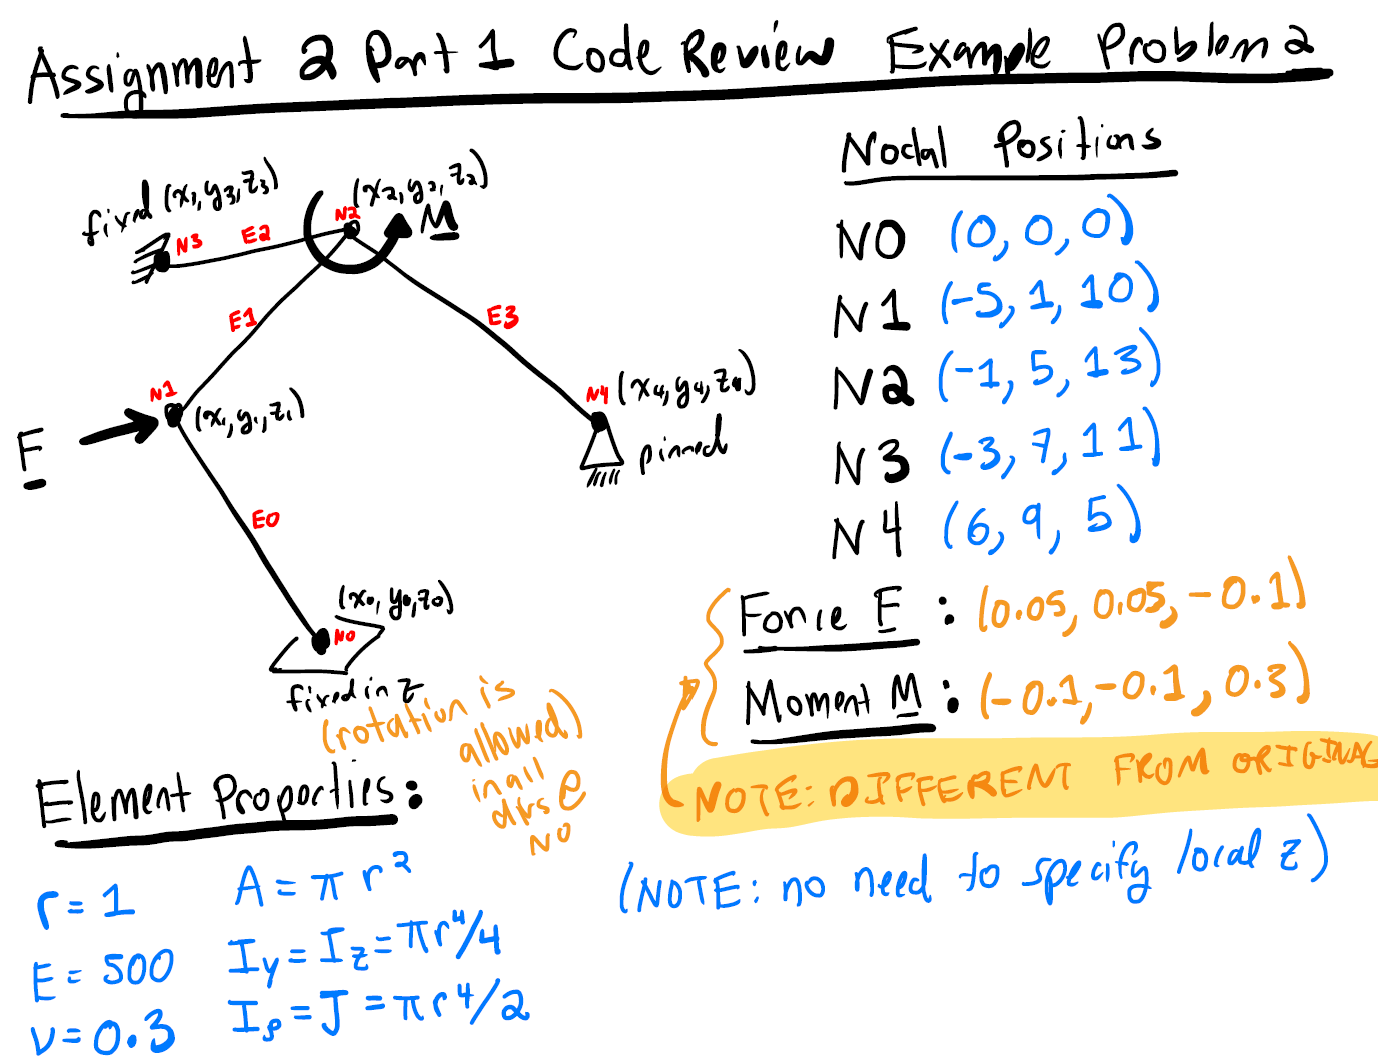 Assignment 2 Part 1 Code Review Example Problem 2
fixed (x₃, y₃, z₃)
N3
E2
N2
(x₂, y₂, z₂)
M
E1
E3
N1
(x₁, y₁, z₁)
F
N4
(x₄, y₄, z₄)
pinned
E0
(x₀, y₀, z₀)
N0
fixed in z
(rotation is
allowed)
in all
dofs @
N0
Nodal Positions
N0 (0, 0, 0)
N1 (-5, 1, 10)
N2 (-1, 5, 13)
N3 (-3, 7, 11)
N4 (6, 9, 5)
Force F : (0.05, 0.05, -0.1)
Moment M : (-0.1, -0.1, 0.3)
NOTE: DIFFERENT FROM ORIGINAL
(NOTE: no need to specify local z)
Element Properties:
r = 1
E = 500
ν = 0.3
A = π r²
I_y = I_z = πr⁴/4
I_ρ = J = πr⁴/2